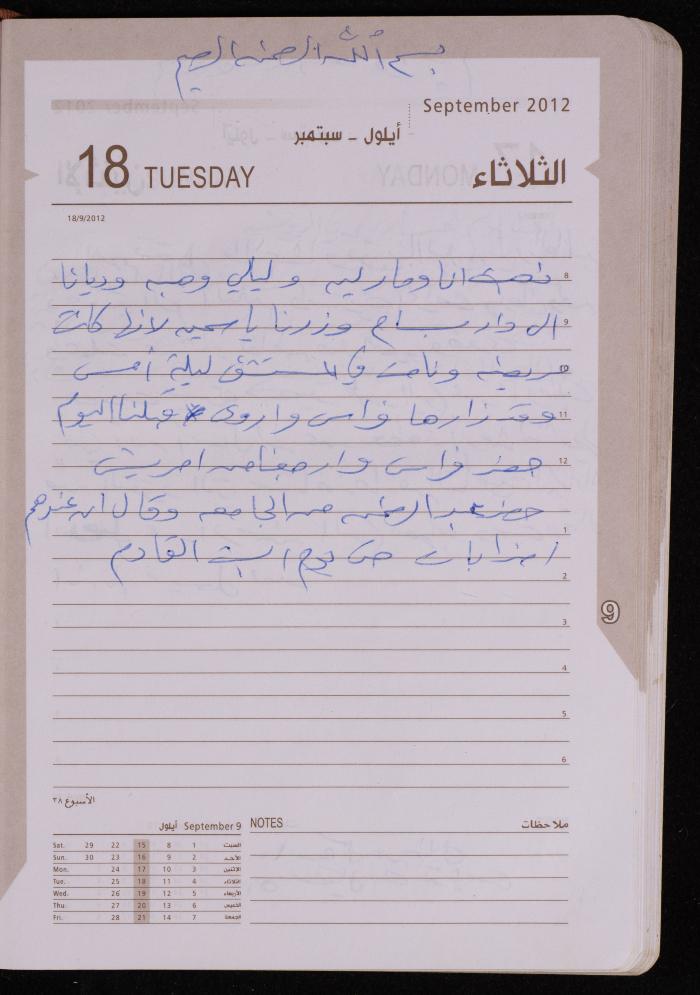 بسم الله الرحمن الرحيم
September 2012
أيلول - سبتمبر
18 TUESDAY
الثلاثاء
18/9/2012
انا ومارليه وليلي وهبه وديانا 8
الى دار بسام وزرنا ياسمين لانها كانت 9
مريضه ونامت في المستشفى ليلة أمس 10
وقد زارها فراس واروى قبلنا اليوم 11
حضر فراس وارجعنا من 12
حضر عبد الرحمن من الجامعه وقال ان عندهم 1
اضرابات حتى يوم السبت القادم
2
3
4
5
6
9
الأسبوع ٣٨
أيلول September 9
Sat. 29 22 15 8 1 السبت
Sun. 30 23 16 9 2 الأحد
Mon. 24 17 10 3 الاثنين
Tue. 25 18 11 4 الثلاثاء
Wed. 26 19 12 5 الأربعاء
Thu. 27 20 13 6 الخميس
Fri. 28 21 14 7 الجمعة
NOTES ملاحظات